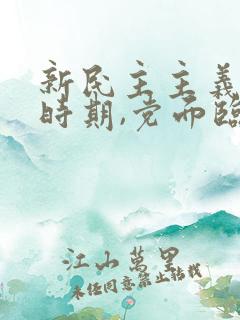 新民主主義
時期,党面臨
江山萬里
未经同意禁止转载